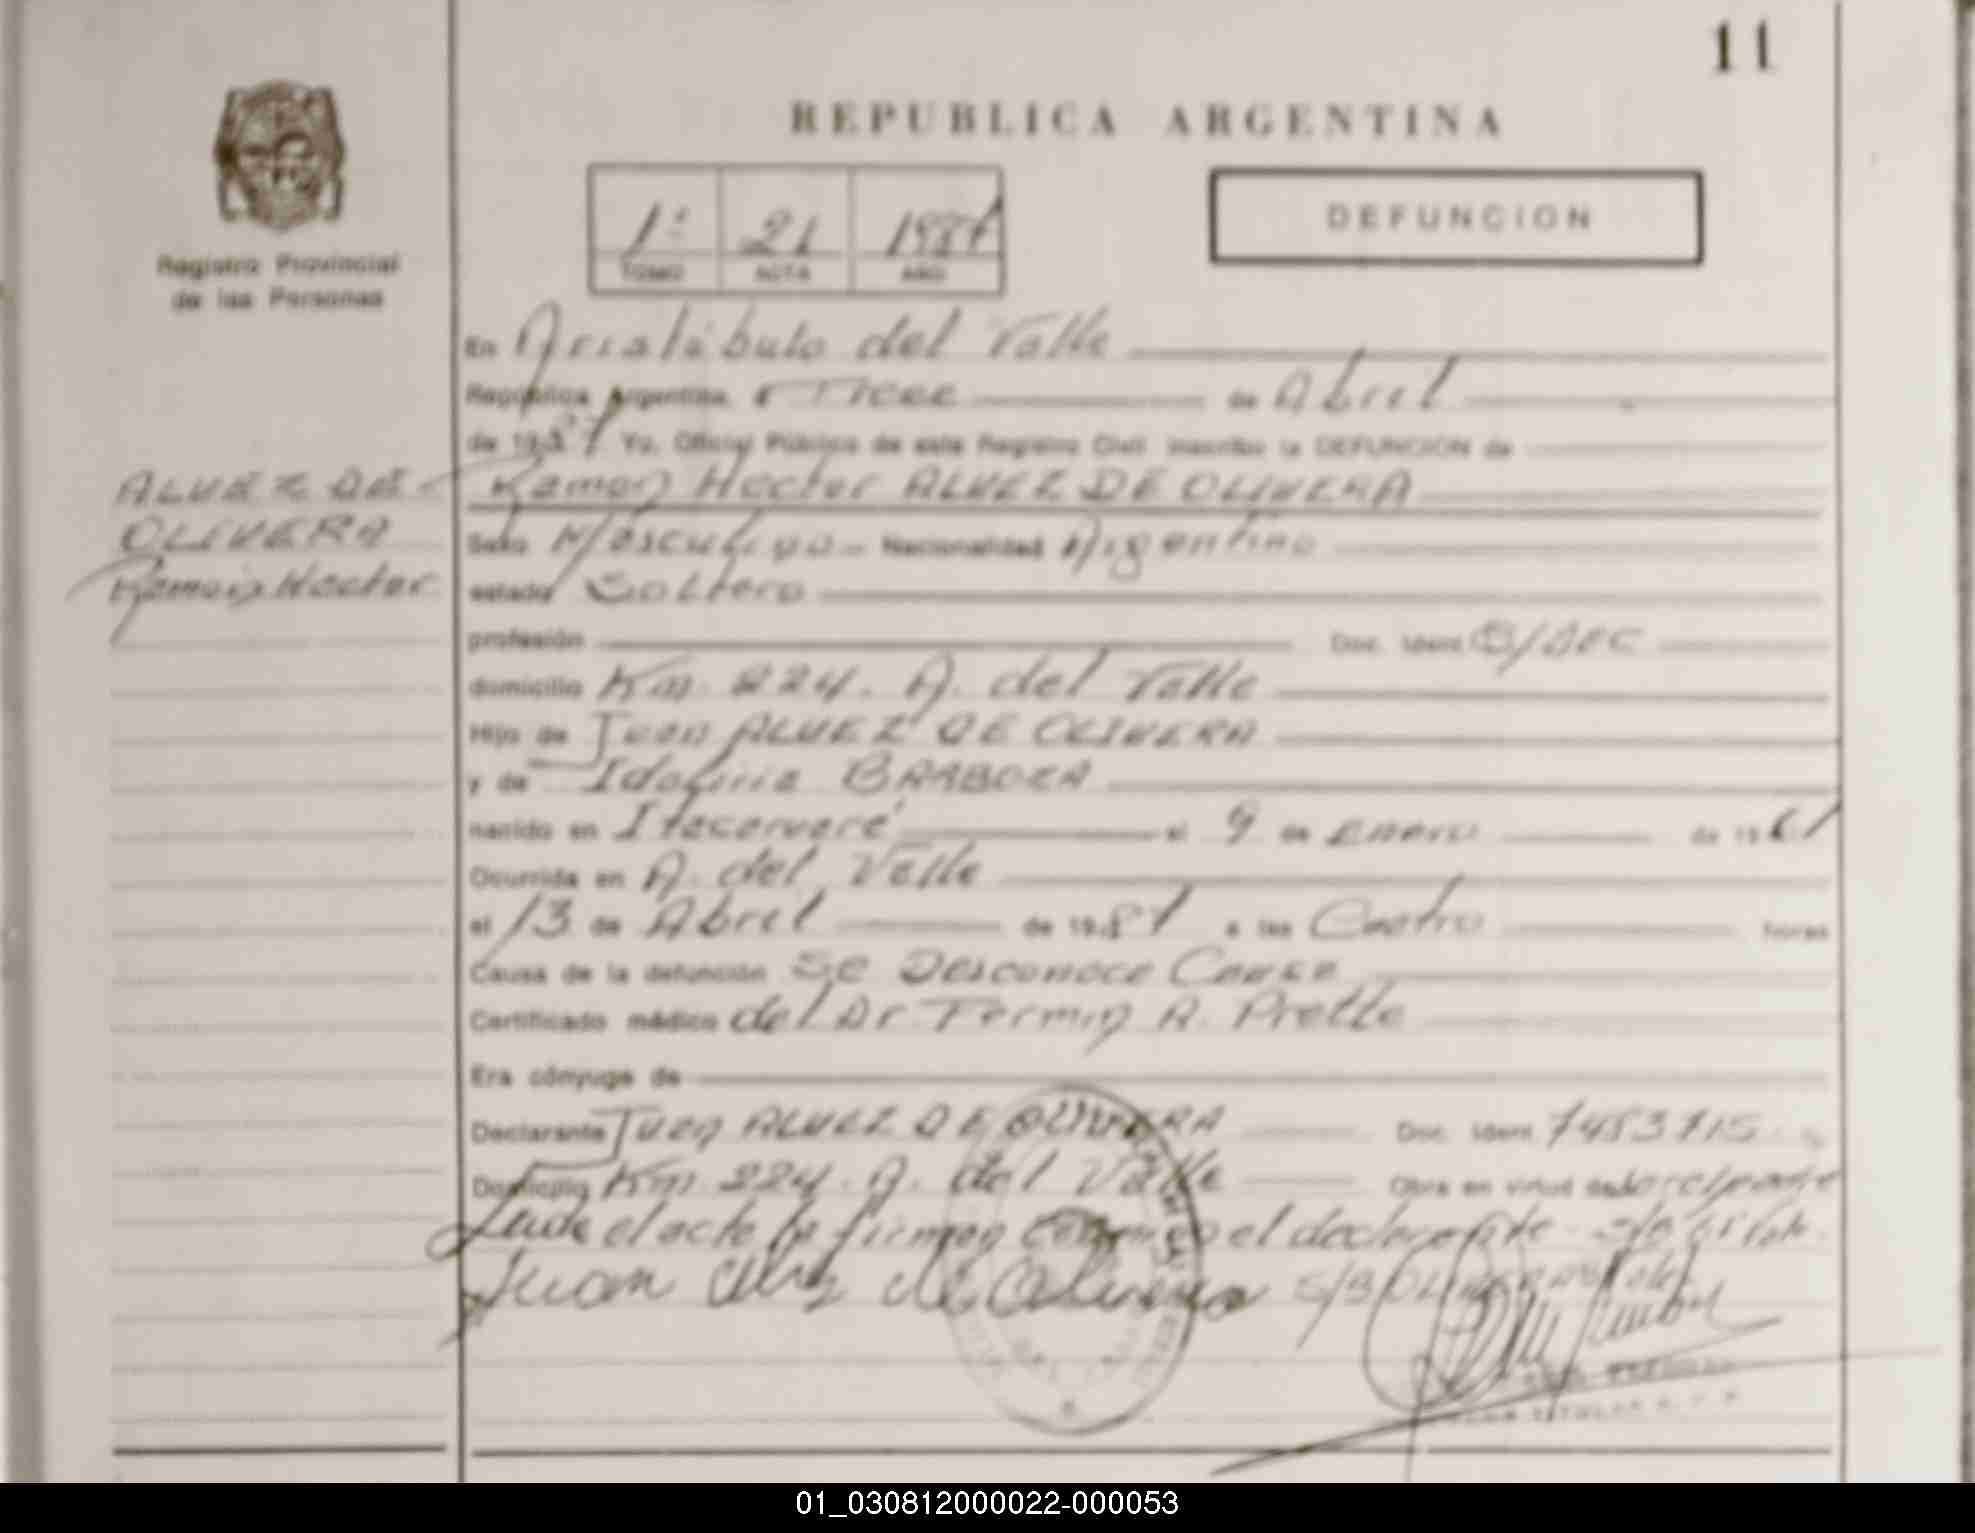 11
REPUBLICA ARGENTINA
Registro Provincial
de las Personas
1º 21 1987
TOMO ACTA AÑO
DEFUNCION
En Aristóbulo del Valle
República Argentina, a Trece de Abril
de 1987 Yo, Oficial Público de este Registro Civil inscribo la DEFUNCION de
ALVEZ DE
OLIVERA
Ramón Hector
Ramon Hector ALVEZ DE OLIVERA
Sexo Masculino - Nacionalidad Argentino
estado Soltero
profesión Doc. Ident.
domicilio Km. 224. A. del Valle
Hijo de Juan ALVEZ DE OLIVERA
y de BARBOZA
nacido en Itacaruaré el 9 de Enero de 1961
Ocurrida en A. del Valle
el 13 de Abril de 1987 a las Cuatro horas
Causa de la defunción Se Desconoce Causa
Certificado médico del Dr. Fermin A.
Era cónyuge de
Declarante Juan ALVEZ DE OLIVERA Doc. Ident.
Domicilio Km 224. A. del Valle Obra en virtud de
el acta la firman conmigo el declarante
Juan de Olivera
01_030812000022-000053